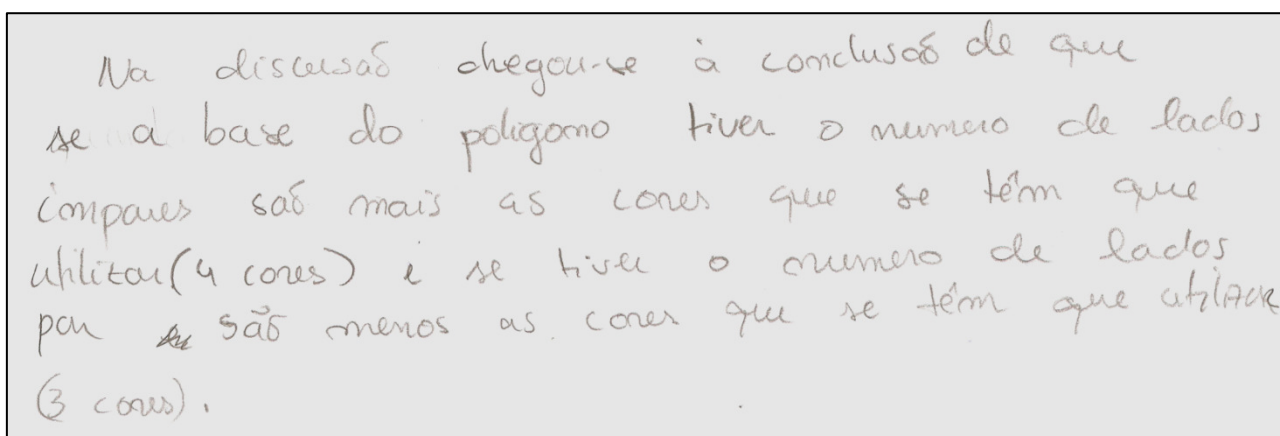 Na discusão chegou-se à conclusão de que
se a base do poligono tiver o numero de lados
impares são mais as cores que se têm que
utilizar (4 cores) e se tiver o numero de lados
par são menos as cores que se têm que utilizar
(3 cores).